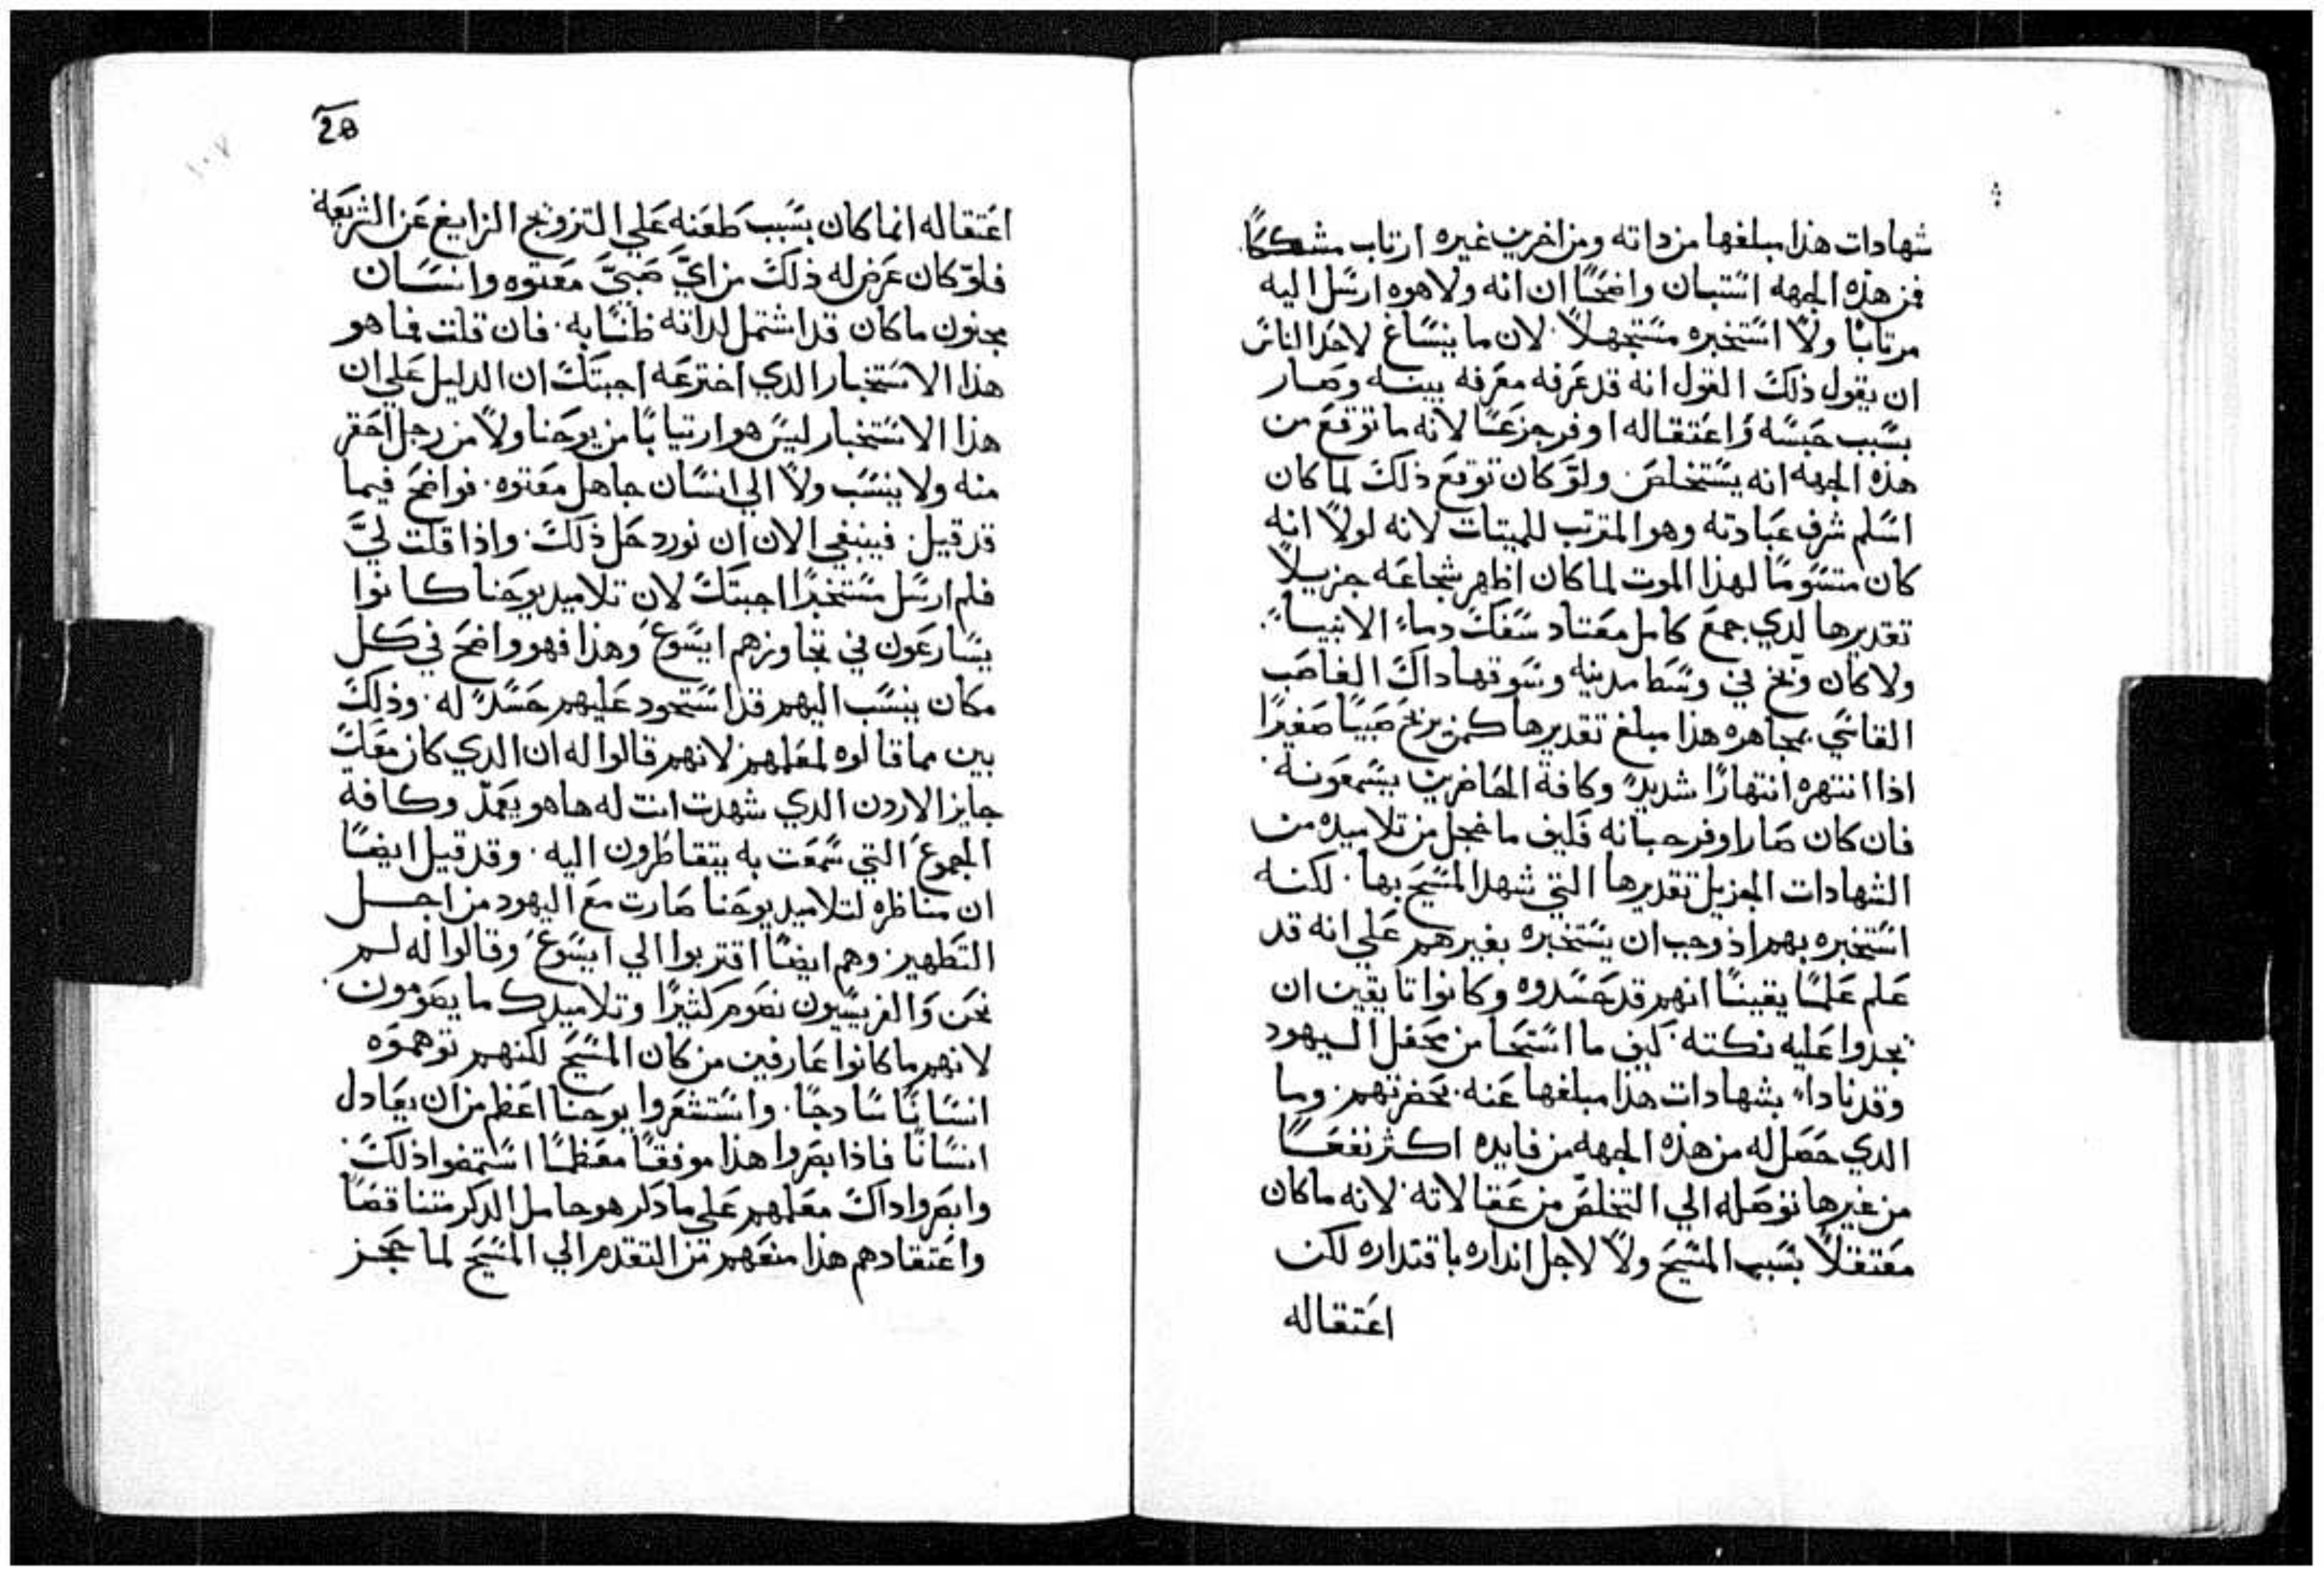 شهادات هذا مبلغها من داته ومن اخرين غيره ارتاب مشككًا
فمن هذه الجهه استبان واضحًا ان انه ولا هوه ارسل اليه
مرتابًا ولا استخبره مستجهلاً لان ما ينساغ لاحد الناس
ان يقول ذلك القول انه قد عرفه معرفه بينه وصار
بسبب حبسه واعتقاله اوفر جزعًا لانه ما توقع من
هذه الجهه انه يستخلص ولو كان توقع ذلك لما كان
اسلم شرف عبادته وهو المترتب للميتات لانه لولا انه
كان متسومًا لهذا الموت لما كان اظهر شجاعه جزيلاً
تقديرها لدي جمع كامل معتاد سفك دماء الانبياء
ولا كان وبخ في وسط مدينه وسوقها داك الغاصب
القاسي بمجاهره هذا مبلغ تقديرها كمن يزبخ صبيًا صغيرًا
اذا انتهره انتهارًا شديدً وكافة الحاضرين يسمعونه
فان كان صار اوفر جبانه فليف ما خجل من تلاميده من
الشهادات الجزيل تقديرها التي شهد المسيح بها لكنه
استخبره بهم اذ وجب ان يستخبره بغيرهم علي انه قد
علم علمًا يقينًا انهم قد حسدوه وكانوا تايقين ان
يجدوا عليه نكته كيف ما استحا من محفل اليهود
وقد نادا بشهادات هذا مبلغها عنه بحضرتهم وما
الدي حصل له من هذه الجهه من فايده اكثر نفعًا
من غيرها توصله الي التخلص من عقالاته لانه ما كان
معتقلاً بسبب المسيح ولا لاجل انداره باقتداره لكن
اعتقاله
20
١٠٧
اعتقاله انما كان بسبب طعنه علي التزويج الزايغ عن الشريعة
فلو كان عرض له ذلك من اي صبي معتوه وانسان
مجنون ما كان قد اشتمل لداته ظنًا به فان قلت فما هو
هذا الاستخبار الدي اخترعه اجبتك ان الدليل علي ان
هذا الاستخبار ليس هو ارتيابًا من يوحنا ولا من رجل احقر
منه ولا ينسب ولا الي انسان جاهل معتوه فواضح فيما
قد قيل فينبغي الان ان نورد حل ذلك واذا قلت لي
فلم ارسل مستخبرًا اجبتك لان تلاميد يوحنا كانوا
يسارعون في تجاوزهم ايسوع وهذا فهو واضح في كل
مكان ينسب اليهم قد استحود عليهم حسدً له وذلك
بين مما قالوه لمعلمهم لانهم قالوا له ان الدي كان معك
جايز الاردن الدي شهدت انت له ها هو يعمد وكافة
الجموع التي سمعت به يتقاطرون اليه وقد قيل ايضًا
ان مناظره لتلاميد يوحنا صارت مع اليهود من اجل
التطهير وهم ايضًا اقتربوا الي ايسوع وقالوا له لم
نحن والفريسيون نصوم كثيرًا وتلاميدك ما يصومون
لانهم ما كانوا عارفين من كان المسيح لكنهم توهموه
انسانًا سادجًا واستشعروا يوحنا اعظم من ان يعادل
انسانًا فاذا بصروا هذا موفقًا معظمًا استمضوا ذلك
وابصروا داك معلمهم علي ما دكر هو حامل الدكر متناقصًا
واعتقادهم هذا منعهم من التقدم الي المسيح لما حجز